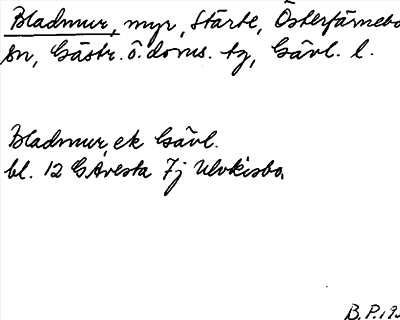 Bladmur, myr, Stärte, Österfärnebo
sn, Gästr. ö. doms. tg, Gävl. l.
Bladmur, ek Gävl.
bl. 12 G Avesta 7j Ulvkisbo.
B.P. 19